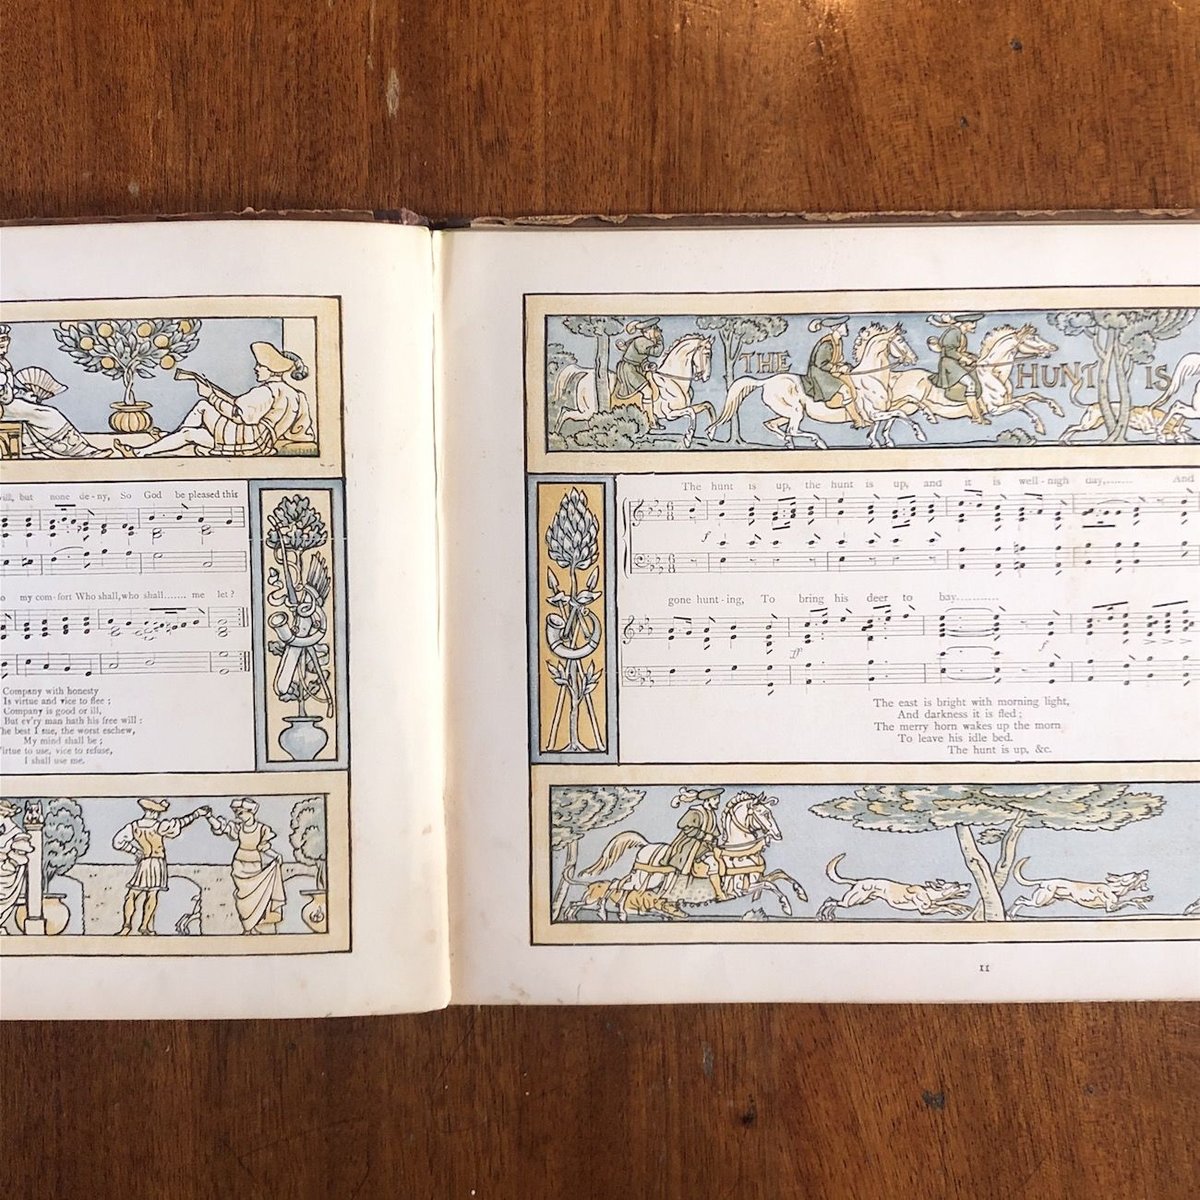 will, but none de-ny, So God be pleased this
my com-fort Who shall, who shall...... me let?
Company with honesty
Is virtue and vice to flee;
Company is good or ill,
But ev'ry man hath his free will:
The best I sue, the worst eschew,
My mind shall be;
Virtue to use, vice to refuse,
I shall use me.
THE HUNT IS
The hunt is up, the hunt is up, and it is well-nigh day,........ And
f
gone hunt-ing, To bring his deer to bay............
ff
f
The east is bright with morning light,
And darkness it is fled;
The merry horn wakes up the morn
To leave his idle bed.
The hunt is up, &c.
11